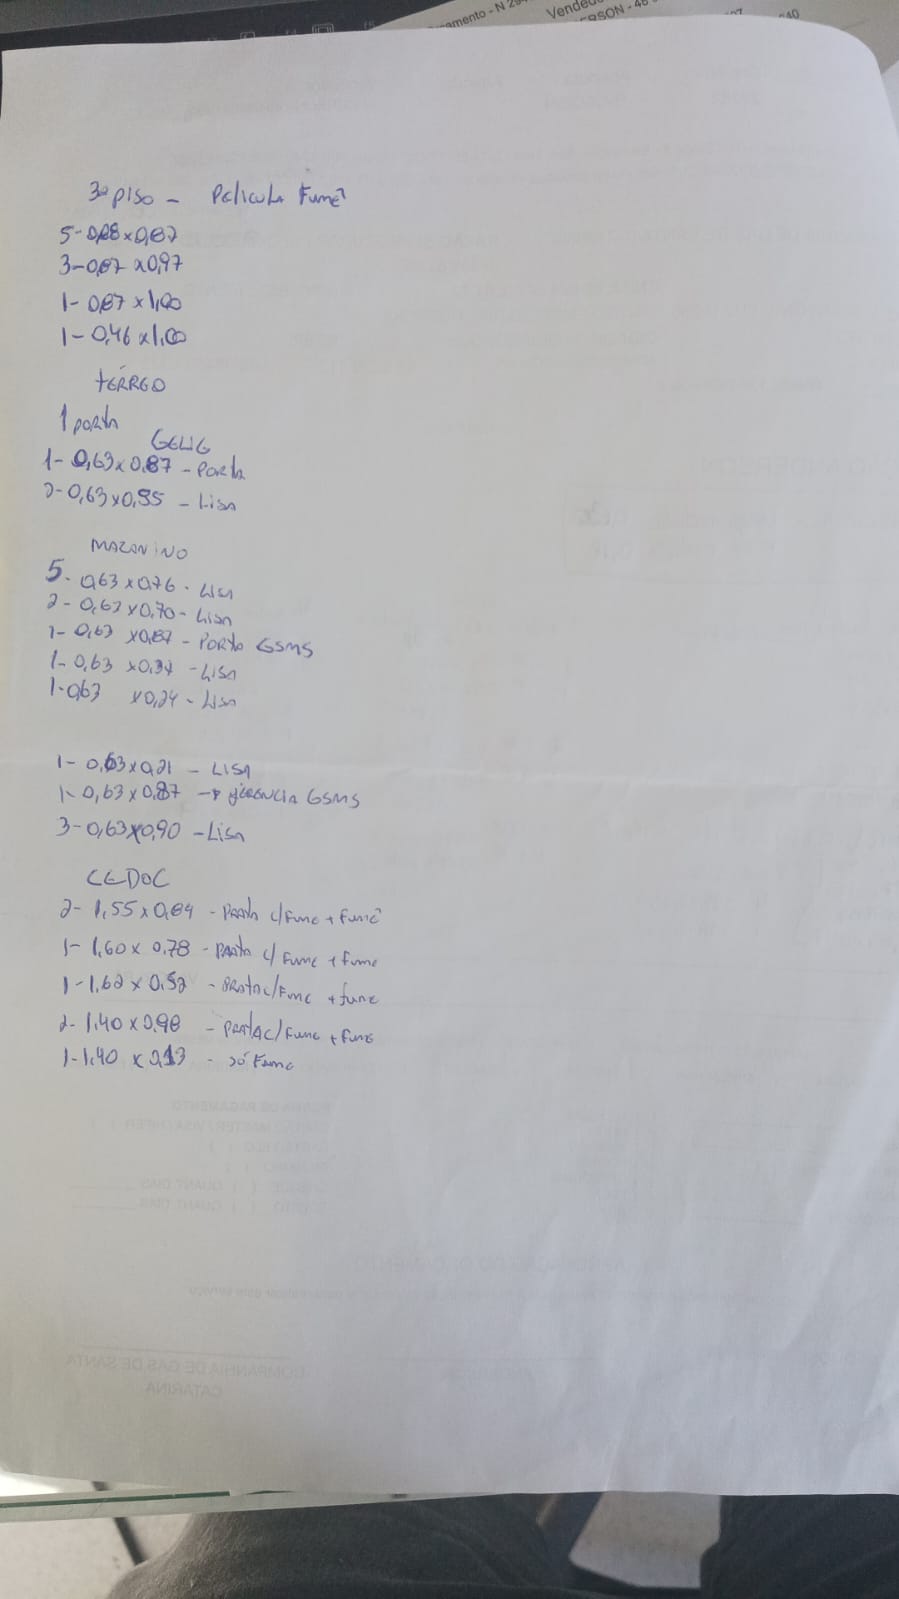 amento - N 294
Vended
ERSON - 48
3º PISO - Pelicula Fumê
5-0,88x0,87
3-0,87 x0,97
1- 0,87 x 1,00
1- 0,46 x1,00
TÉRREO
1 porta
GELIG
1- 0,63x0,87 - Porta
2-0,63x0,55 - Lisa
MAZANINO
5- 0,63 x 0,76 - Lisa
2- 0,63 x0,70 - Lisa
1- 0,63 x0,87 - Porta GSMS
1- 0,63 x0,34 - Lisa
1-0,63 x0,24 - Lisa
1- 0,63x0,21 - LISA
1- 0,63x0,87 → gerencia GSMS
3-0,63x0,90 - Lisa
CEDOC
2- 1,55x0,84 - Prata c/Fume + Fumê
1- 1,60x 0,78 - Prata c/ Fume + fume
1-1,62 x 0,52 - Prata c/Fume + fume
2- 1,40 x 0,98 - Prata c/Fume + Fume
1-1,40 x 0,13 - só Fume